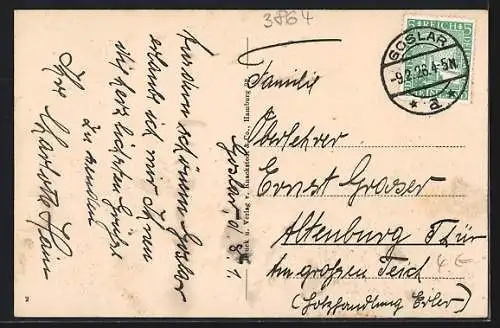 3864
Goslar, d. 8.2.
Aus dem schönen Goslar
erlaubt ich mir Ihnen
die herzlichsten Grüße
zu senden
Ihre Charlotte Hain
Druck u. Verlag v. Knackstedt & Co., Hamburg
DEUTSCHES REICH
5
GOSLAR
-9.2.26.4-5N
* a *
Familie
Oberlehrer
Ernst Grosser
Altenburg Thür
Am großen Teich
(Holzhandlung Erler)